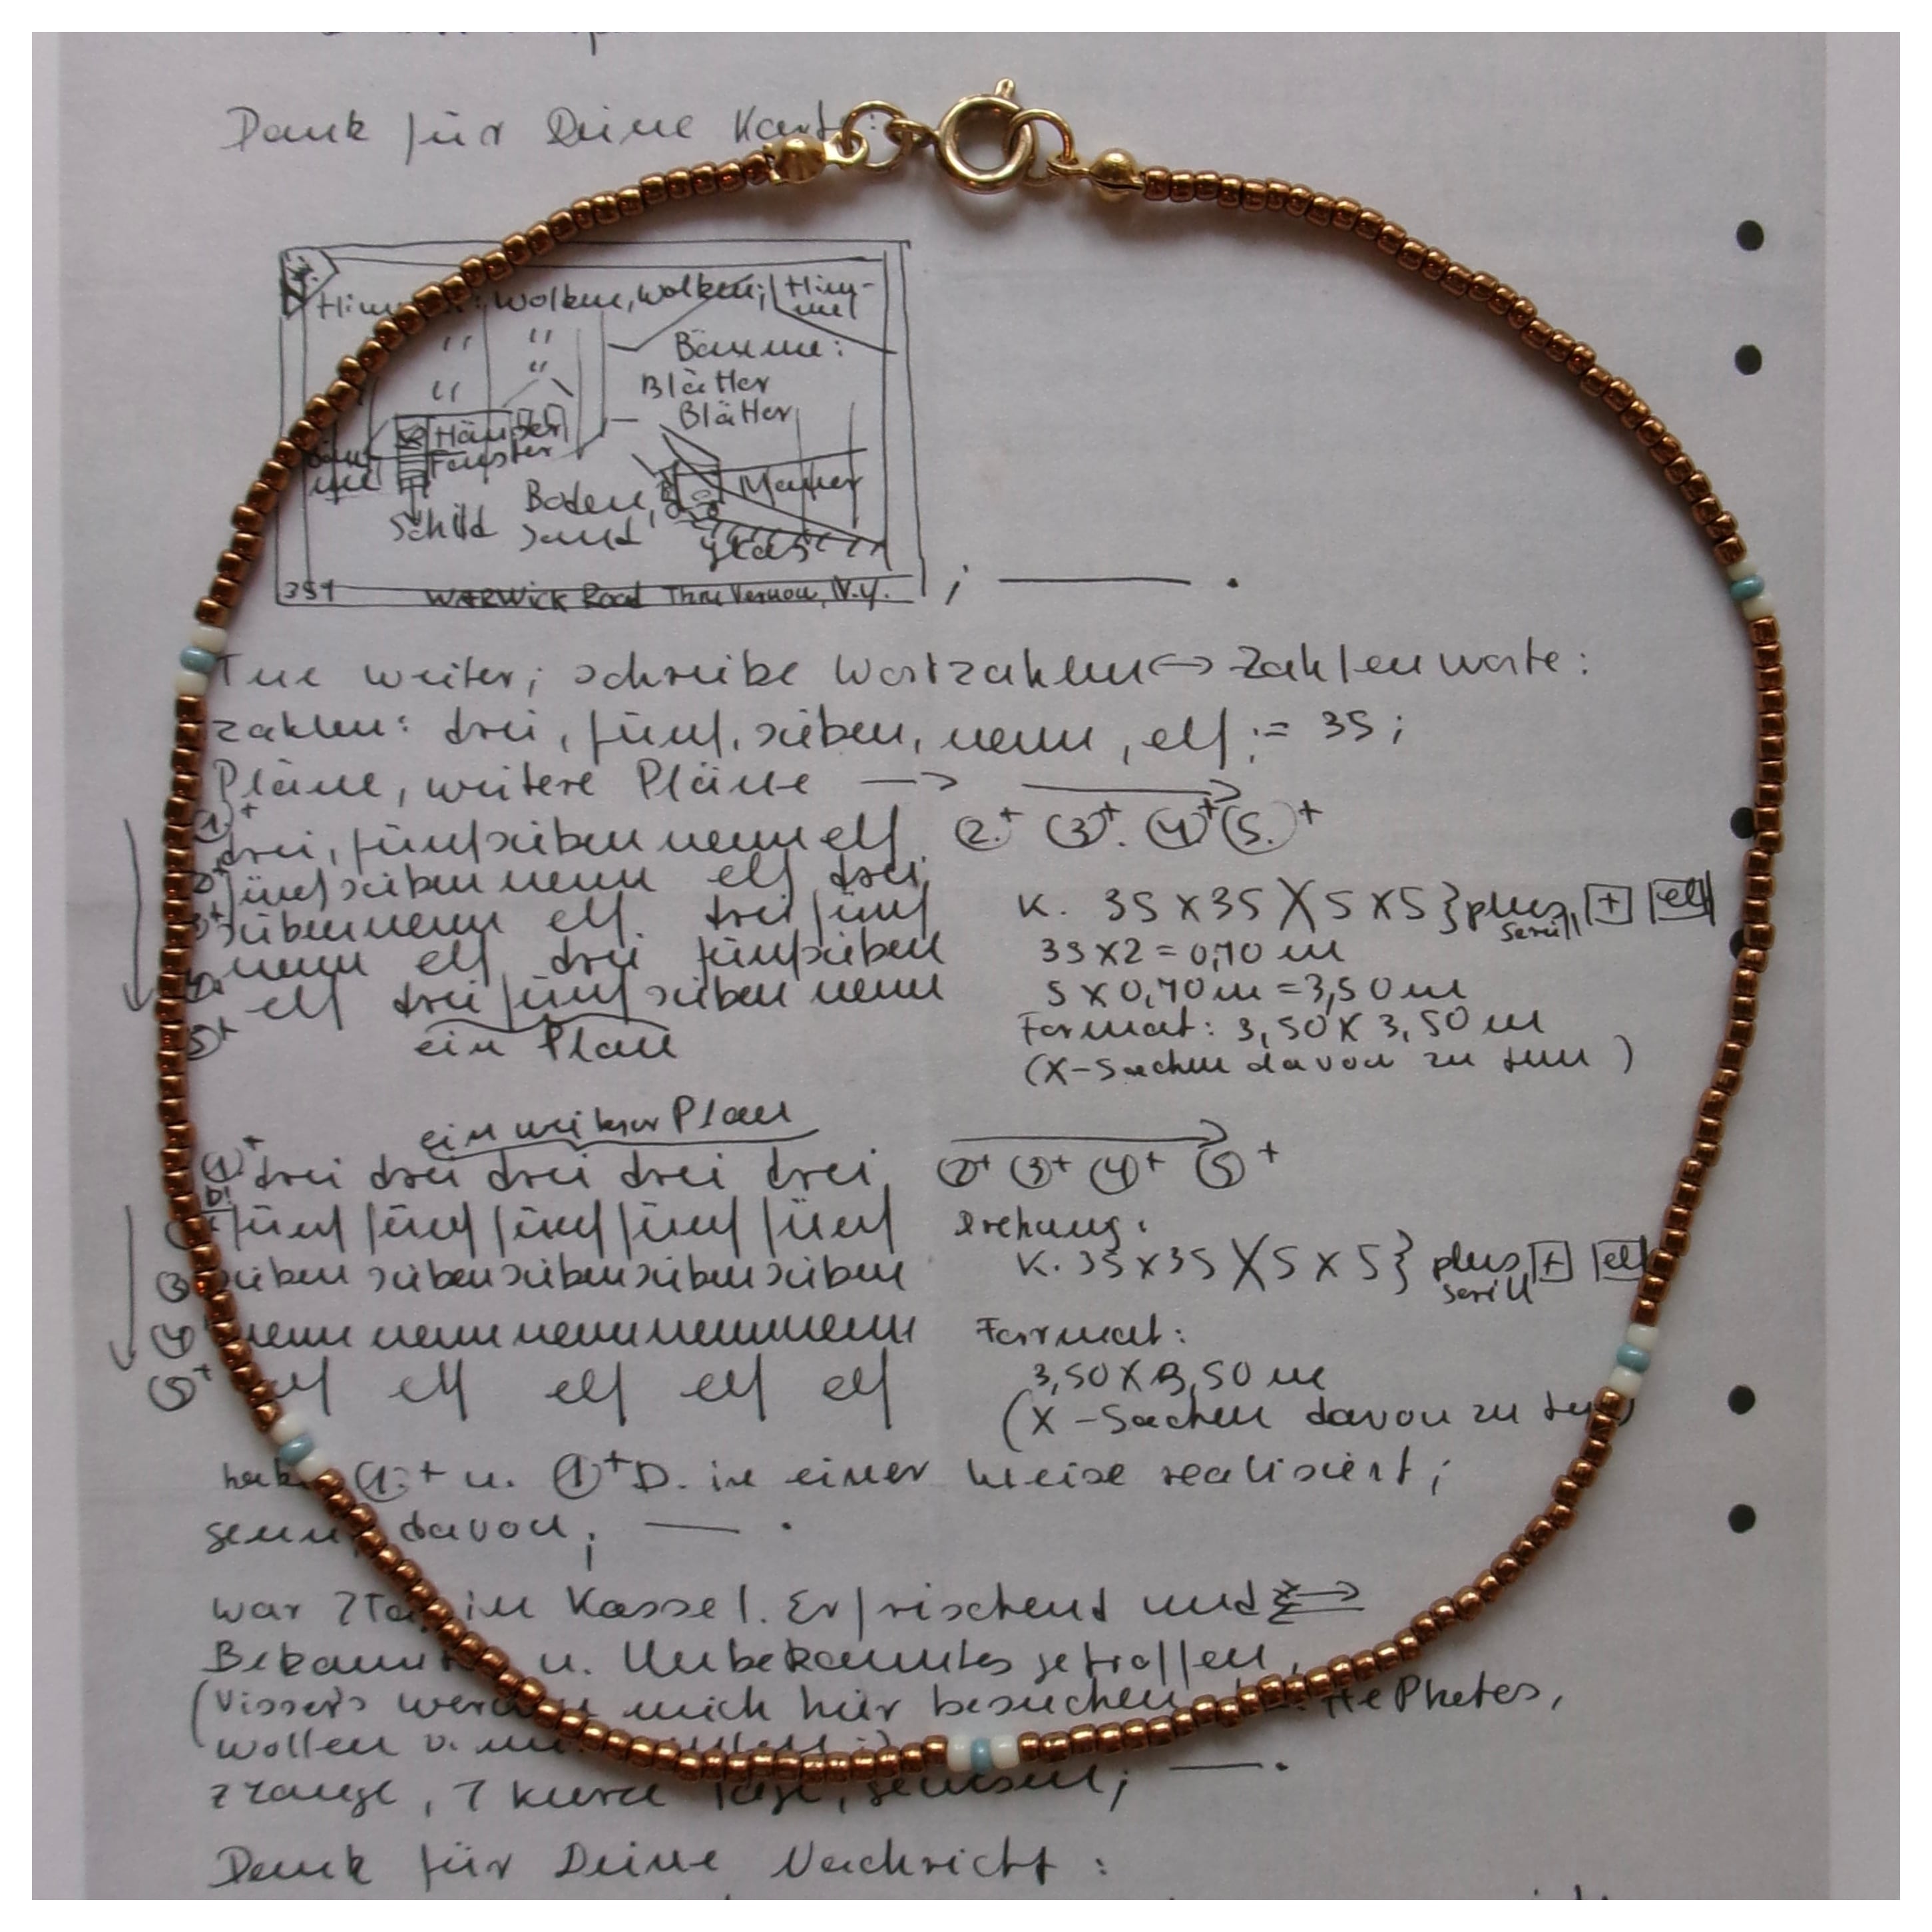 Dank für Deine Karte:
Wolken, Wolken; Him-
mel
" "
" "
Bäume:
Blätter
Blätter
Häuser
Fenster
Mauer
Schild
Boden,
Sand
Gras
351 WARWick Road Thru Vernon, N.Y.
; — .
Tue weiter; schreibe Wortzahlen <-> Zahlenworte:
Zahlen: drei, fünf, sieben, neun, elf := 35;
Pläne, weitere Pläne —>
1.+ drei, fünf sieben neun elf 2.+ 3+. 4+ 5.+
fünf sieben neun elf drei
3+ sieben neun elf drei fünf
4. neun elf drei fünf sieben
5+ elf drei fünf sieben neun
ein Plan
K. 35 x 35 X 5 x 5 } plus, + elf
seriell
35 x 2 = 0,70 m
5 x 0,70 m = 3,50 m
Format: 3,50 x 3,50 m
(X-Sachen davon zu tun)
ein weiterer Plan
1+ drei drei drei drei drei 2+ 3+ 4+ 5+
D!
fünf fünf fünf fünf fünf
3 sieben sieben sieben sieben sieben
4 neun neun neun neun neun
5+ elf elf elf elf elf
Drehung:
K. 35 x 35 X 5 x 5 } plus, + elf
seriell
Format:
3,50 X 3,50 m
(X-Sachen davon zu tun)
habe 1.+ u. 1+ D. in einer Weise realisiert;
davon; — .
war 7 Tage in Kassel. Erfrischend und
Bekanntes u. Unbekanntes getroffen,
(Vissers werden mich hier besuchen Photos,
wollen v.
7 lange, 7 kurze Tage, gewesen; — .
Dank für Deine Nachricht: